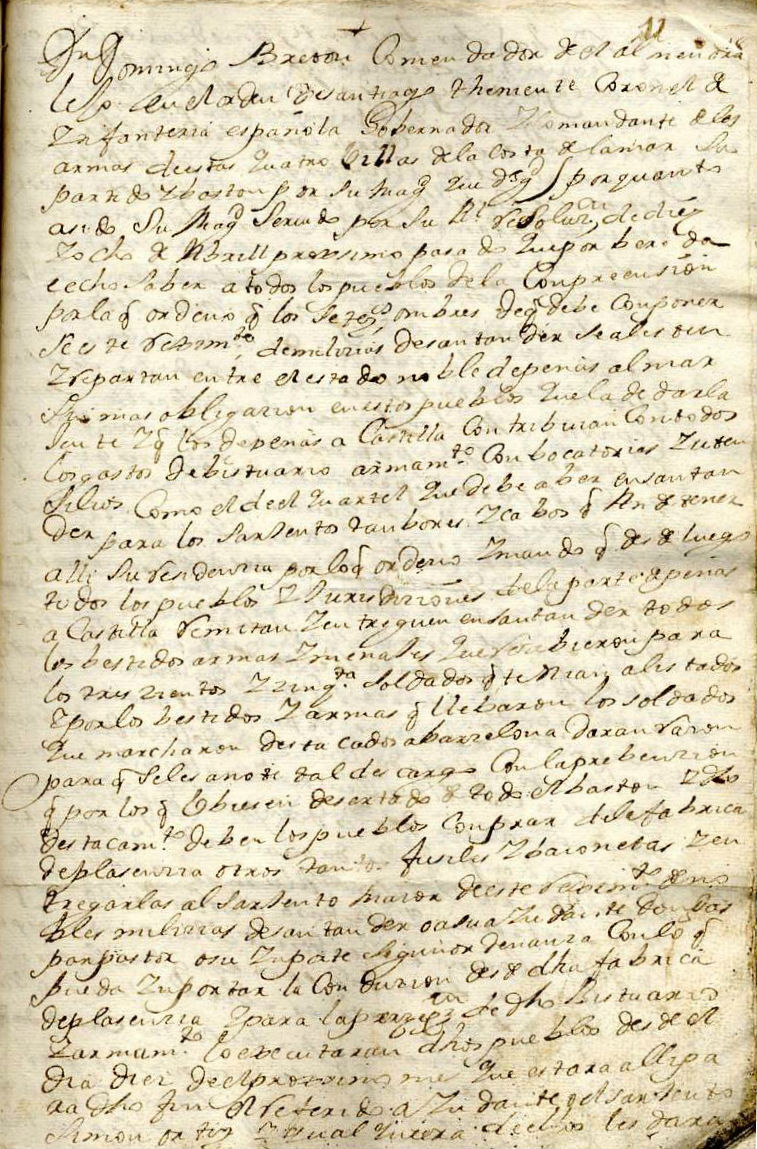 11
Dn Domingo Breton Comendador de el almendra
lexo en el orden de santiago theniente Coronel de
Infanteria española Gobernador y Comandante de las
armas de estas quatro Villas de la costa de la mar su
partido y baston por su Magd que Ds ge porquanto
asido Su Magd Servido por su Rl resoluzn de diez
y ocho de Abrill proxsimo pasado que por bereda
e echo saber a todos los pueblos de la Conpreension
por la q ordeno q los setezs ombres de q debe Conponer
se este rejimto de milizias de santander se alisten
y repartan entre el estado noble de penas al mar
sin mas obligazion en estos pueblos que la de dar la
jente y q los de penas a Castilla Contribuian Con todos
los gastos de bistuario armamto Conbocatorias y uten
silios Como el de el quartel que debe aber en santan
der para los sarjentos tanbores y cabos q An de tener
alli su residenzia por lo q ordeno y mando q desde luego
todos los pueblos y Jurisdiziones de la parte de penas
a Castilla remitan y entreguen en santander todos
los bestidos armas y menajes que rezibieron para
los trescientos y zinqta soldados q tenian alistados
y por los bestidos y armas q llebaron los soldados
que marcharon destacados a barzelona daran razon
para q se les anote tal descargo Con la prebenzion
q por los q Ubiesen desertado de todo el baston y dho
destacamto deben los pueblos Conprar de la fabrica
de plasenzia otros tantos fusiles y baionetas y en
tregarlas al sarjento maior de este rejimto de no
bles milizias de santander o a su ayudante don
por pastor o su yn parte seguir ordenanza Con lo q
pueda ynportar la Conduzion desde dha fabrica
de plasenzia y para la perzepzn de dho bistuario
y armamto lo executaran dhos pueblos desde el
dia diez de el proximo mes que estara alli pa
ra dho fin el referido ayudante o el sarjento
simon ortiz y qual quiera de ellos les dara